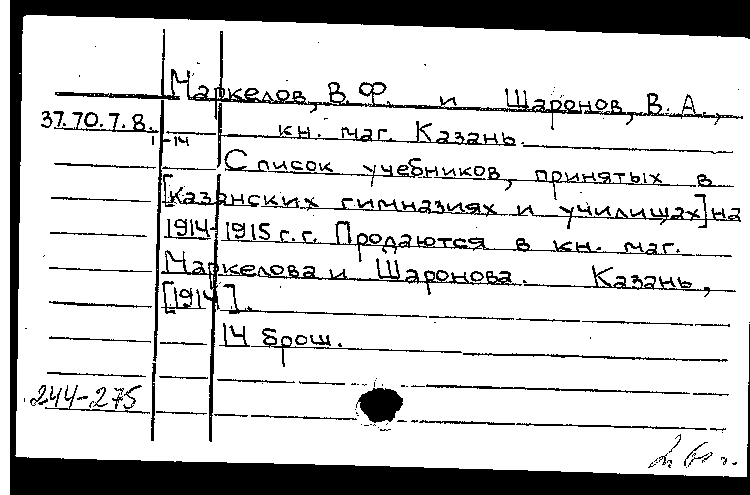 Маркелов, В. Ф. и Шаронов, В. А.,
37.70.7.8. кн. маг. Казань.
1-14
Список учебников, принятых в
[казанских гимназиях и училищах] на
1914-1915 г.г. Продаются в кн. маг.
Маркелова и Шаронова. Казань,
[1914].
14 брош.
244-275